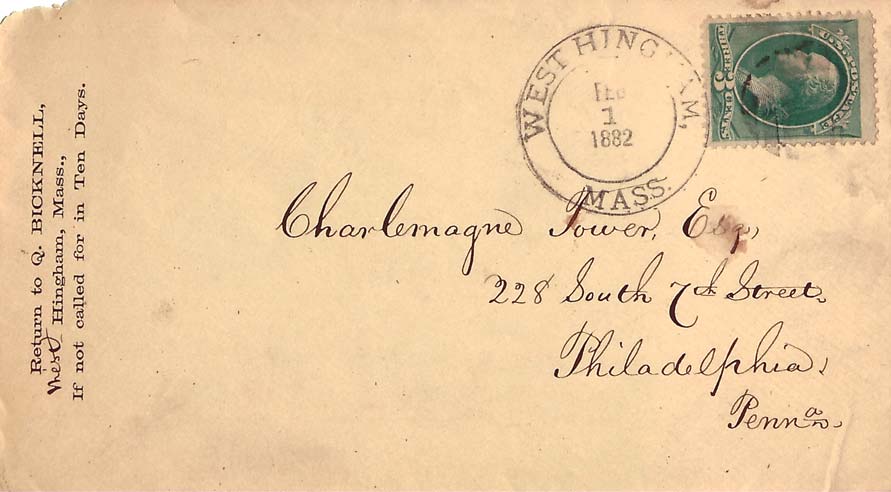 Return to Q. BICKNELL,
West Hingham, Mass.,
If not called for in Ten Days.
WEST HINGHAM,
FEB
1
1882
MASS.
U.S. POSTAGE
THREE 3 CENTS
Charlemagne Tower, Esq,
228 South 7th Street.
Philadelphia,
Penna.